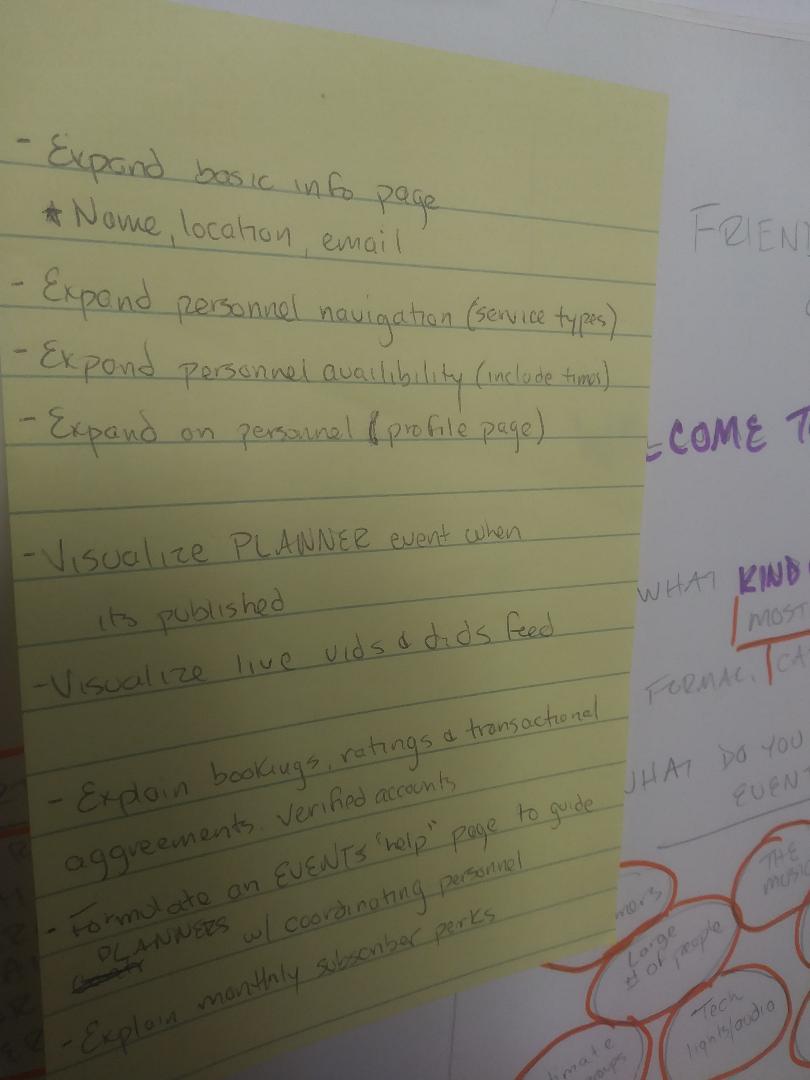 - Expand basic info page
* Name, location, email
- Expand personnel navigation (service types)
- Expand personnel availibility (include times)
- Expand on personnel (profile page)
- Visualize PLANNER event when
its published
- Visualize live vids & feed
- Explain bookings, ratings & transactional
aggreements. verified accounts
- Formulate an EVENTs "help" page to guide
PLANNERS w/ coordinating personnel
- Explain monthly subscriber perks
FRIEN
COME T
WHAT KIND
MOST
FORMAL,
WHAT DO YOU
EVENT
THE
MUSIC
Large
# of people
Tech
lights/audio